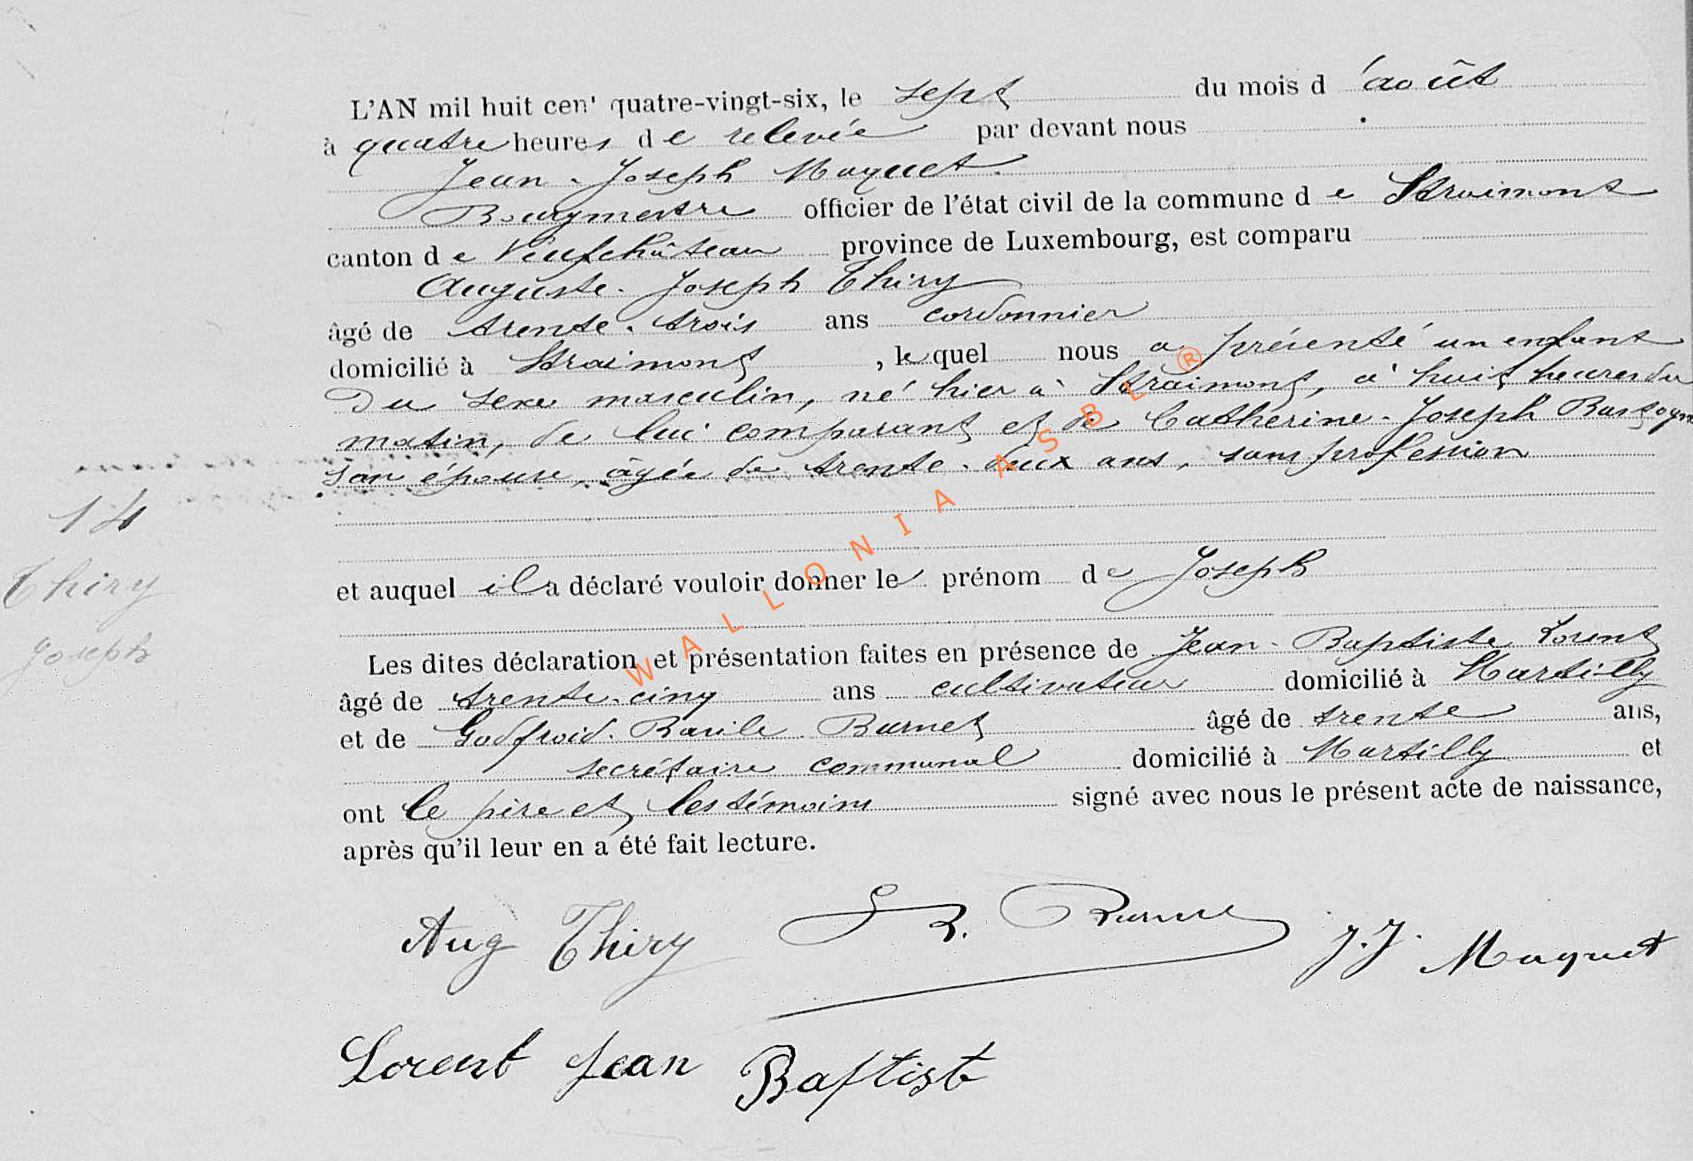 L'AN mil huit cen' quatre-vingt-six, le sept du mois d 'août
à quatre heures de relevée par devant nous
Jean-Joseph Maquet
Bourgmestre officier de l'état civil de la commune de Straimont
canton de Neufchâteau province de Luxembourg, est comparu
Auguste-Joseph Thiry
âgé de trente-trois ans cordonnier
domicilié à Straimont, lequel nous a présenté un enfant
du sexe masculin, né hier à Straimont, à huit heures du
matin, de lui comparant et de Catherine-Joseph
son épouse, âgée de trente-deux ans, sans profession
14
Thiry
Joseph
et auquel il a déclaré vouloir donner le prénom de Joseph
Les dites déclaration et présentation faites en présence de Jean-Baptiste Lorent
âgé de trente-cinq ans cultivateur domicilié à Martilly
et de Godfroid-Basile Burnet âgé de trente ans,
secrétaire communal domicilié à Martilly et
ont le père et les témoins signé avec nous le présent acte de naissance,
après qu'il leur en a été fait lecture.
Aug Thiry G B. Burnet J. J. Maquet
Lorent Jean Baptist
WALLONIA ASBL ®